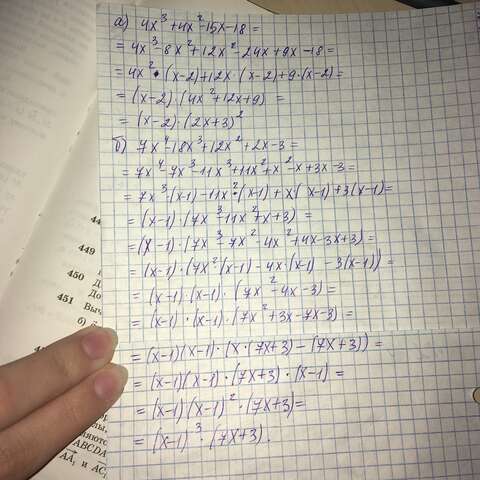 а) 4x³+4x²-15x-18=
=4x³-8x²+12x²-24x+9x-18=
=4x²·(x-2)+12x·(x-2)+9·(x-2)=
=(x-2)·(4x²+12x+9)=
=(x-2)·(2x+3)²
б) 7x⁴-18x³+12x²+2x-3=
=7x⁴-7x³-11x³+11x²+x²-x+3x-3=
=7x³·(x-1)-11x²·(x-1)+x(x-1)+3(x-1)=
=(x-1)·(7x³-11x²+x+3)=
=(x-1)·(7x³-7x²-4x²+4x-3x+3)=
=(x-1)·(7x²(x-1)-4x(x-1)-3(x-1))=
=(x-1)(x-1)·(7x²-4x-3)=
=(x-1)·(x-1)·(7x²+3x-7x-3)=
=(x-1)(x-1)·(x·(7x+3)-(7x+3))=
=(x-1)(x-1)·(7x+3)·(x-1)=
=(x-1)(x-1)²·(7x+3)=
=(x-1)³·(7x+3).
449
450
451 Выч
б)
ABCDA
AA₁ и AC